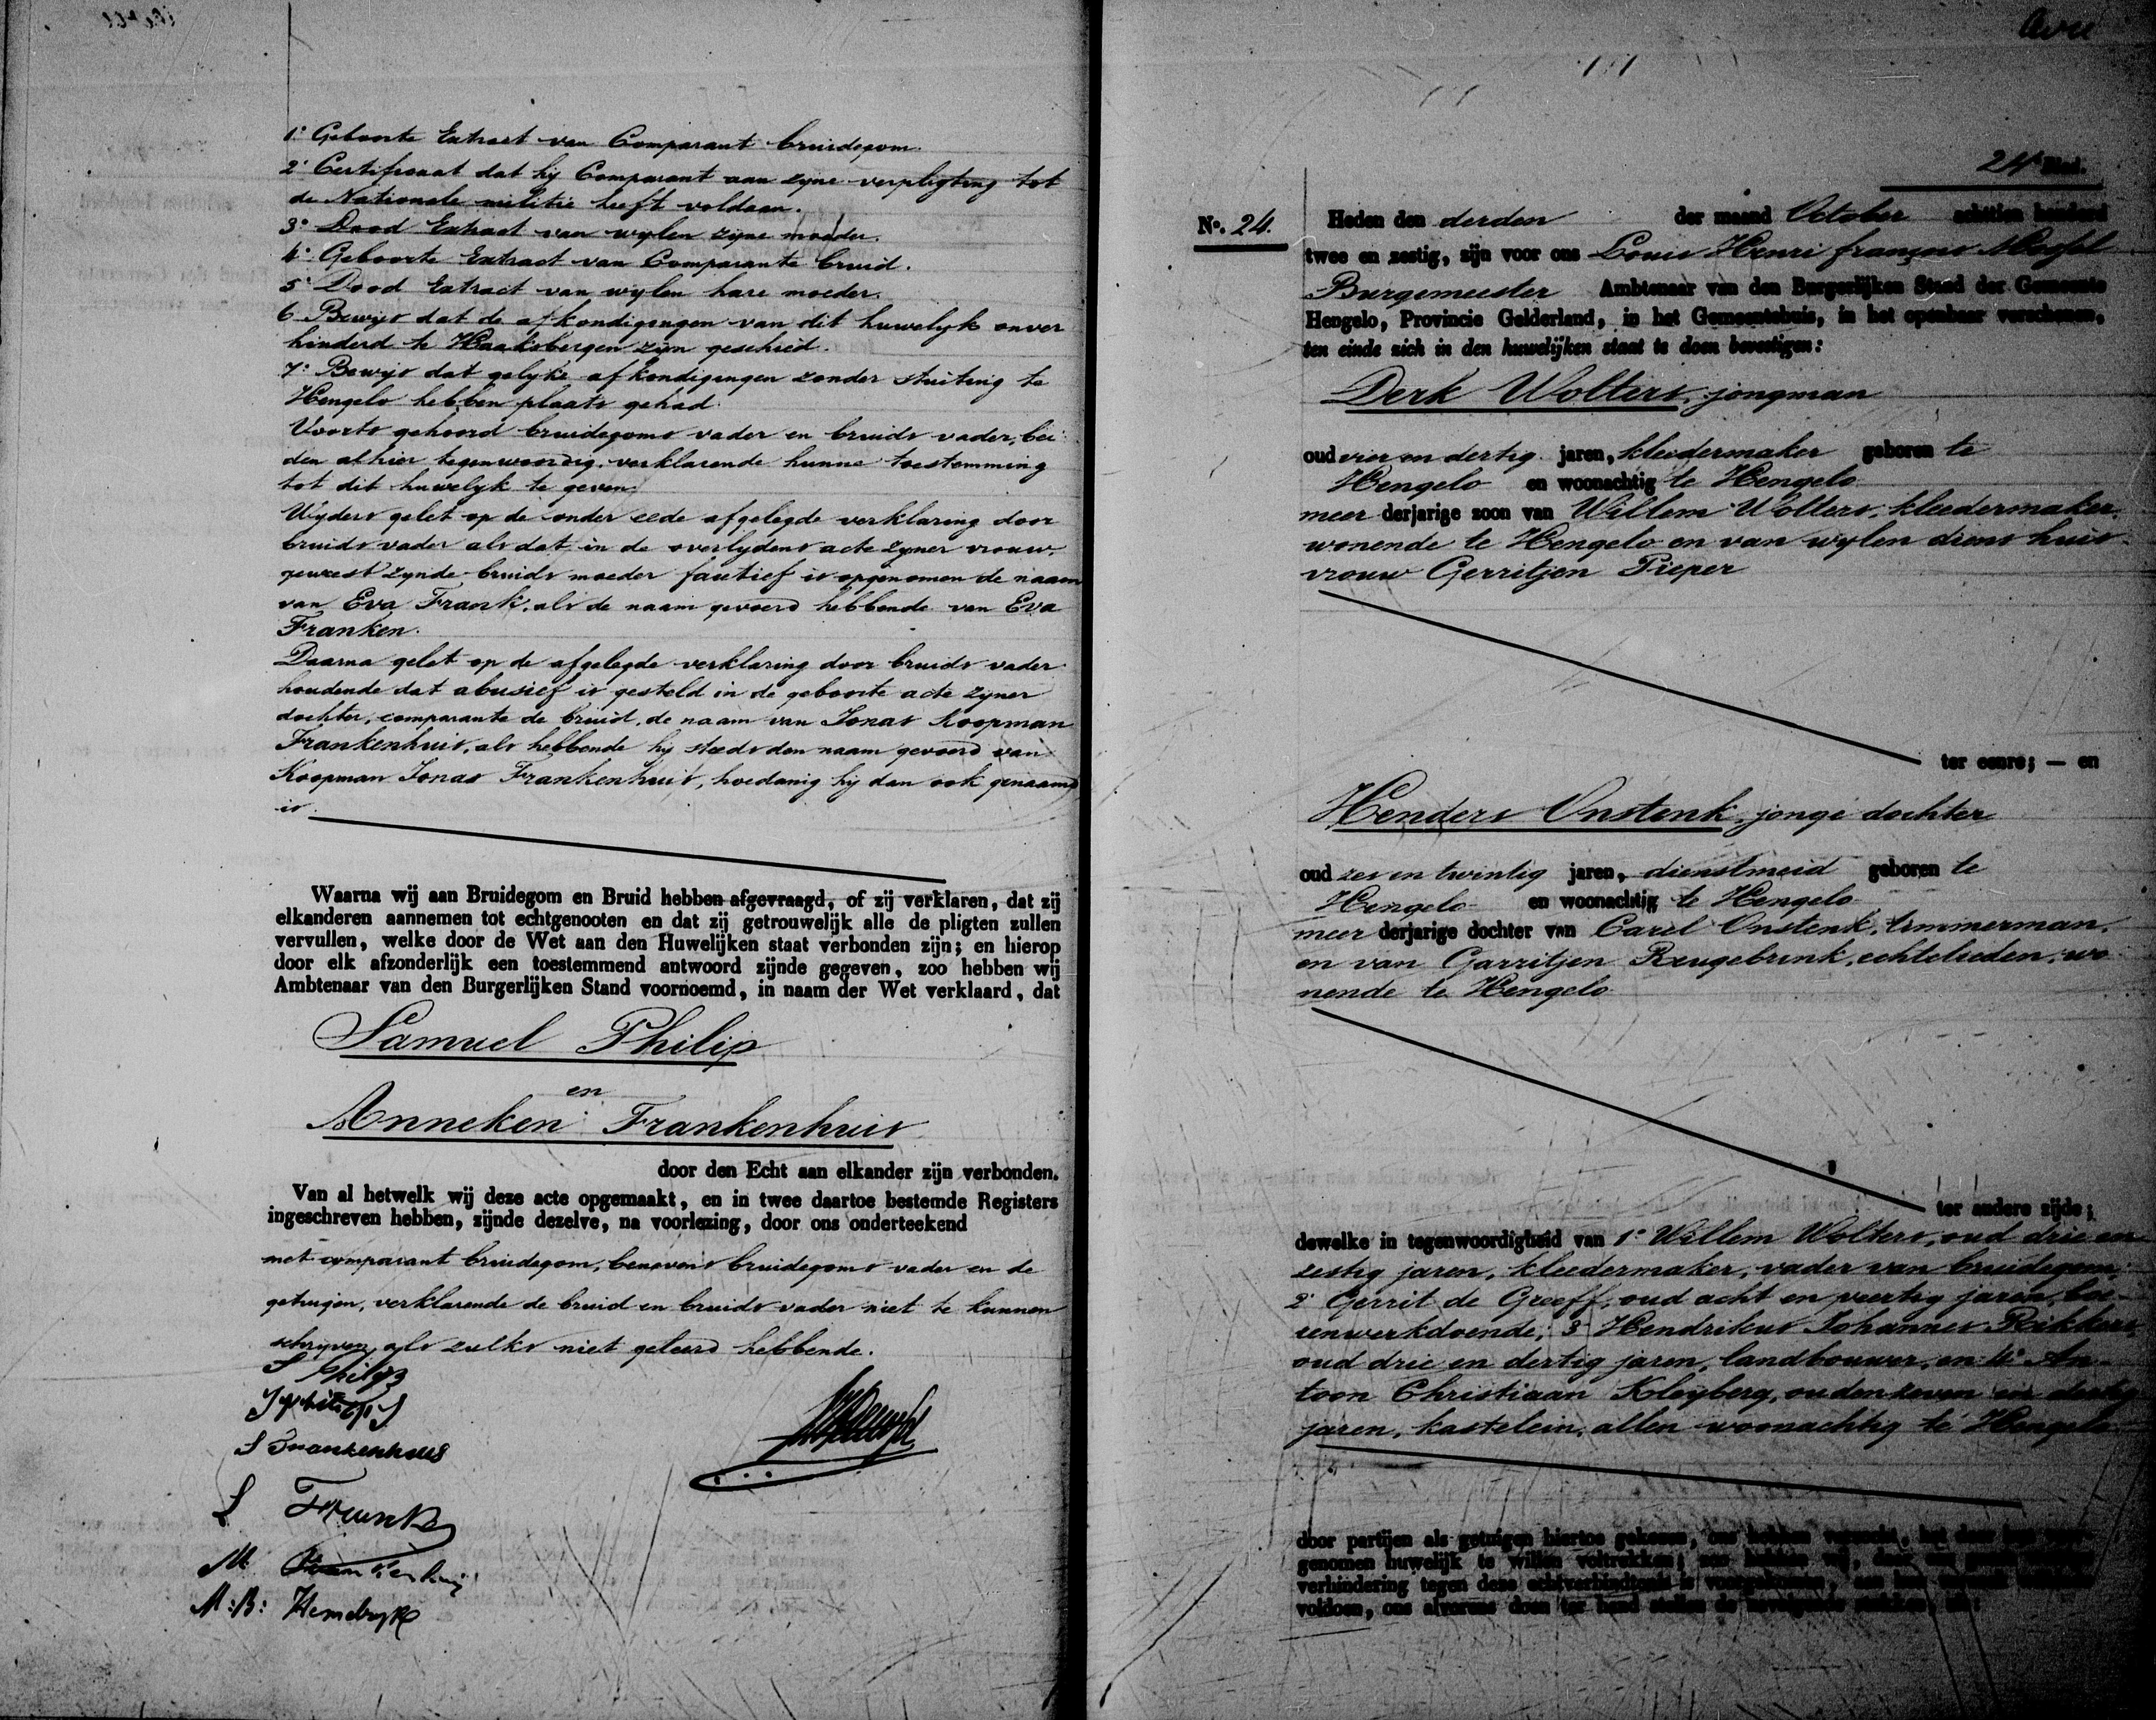 1º Geboorte Extract van Comparant bruidegom.
2º Certificaat dat hy Comparant aan zyne verpligting tot
de Nationale militie heeft voldaan.
3º Dood Extract van wylen zyne moeder.
4º Geboorte Extract van Comparante bruid.
5º Dood Extract van wylen hare moeder.
6 Bewys dat de afkondigingen van dit huwelyk onver
hinderd te Haaksbergen zyn geschied.
7º Bewys dat gelyke afkondigingen zonder stuiting te
Hengelo hebben plaats gehad.
Voorts gehoord bruidegoms vader en bruids vader, bei
den alhier tegenwoordig, verklarende hunne toestemming
tot dit huwelyk te geven.
Wyders gelet op de onder eede afgelegde verklaring door
bruids vader als dat in de overlydens acte zyner vrouw
geweest zynde bruids moeder fautief is opgenomen de naam
van Eva Frank, als de naam gevoerd hebbende van Eva
Franken.
Daarna gelet op de afgelegde verklaring door bruids vader
houdende dat abusief is gesteld in de geboorte acte zyner
dochter, comparante de bruid, de naam van Jonas Koopman
Frankenhuis, als hebbende hy steeds den naam gevoerd van
Koopman Jonas Frankenhuis, hoedanig hy dan ook genaamd
is.
Waarna wij aan Bruidegom en Bruid hebben afgevraagd, of zij verklaren, dat zij
elkanderen aannemen tot echtgenooten en dat zij getrouwelijk alle de pligten zullen
vervullen, welke door de Wet aan den Huwelijken staat verbonden zijn; en hierop
door elk afzonderlijk een toestemmend antwoord zijnde gegeven, zoo hebben wij
Ambtenaar van den Burgerlijken Stand voornoemd, in naam der Wet verklaard, dat
Samuel Philip
en
Anneken Frankenhuis
door den Echt aan elkander zijn verbonden.
Van al hetwelk wij deze acte opgemaakt, en in twee daartoe bestemde Registers
ingeschreven hebben, zijnde dezelve, na voorlezing, door ons onderteekend
met comparant bruidegom, benevens bruidegoms vader en de
getuigen, verklarende de bruid en bruids vader niet te kunnen
schryven, als zulks niet geleerd hebbende.
S Philip
S Frankenhuis
L Frank
M
M:B: Hemelryk
24e Blad.
No. 24. Heden den derden der maand October achttien honderd
twee en zestig, zijn voor ons Louis Henri françois
Burgemeester Ambtenaar van den Burgerlijken Stand der Gemeente
Hengelo, Provincie Gelderland, in het Gemeentehuis, in het openbaar verschenen,
ten einde zich in den huwelijken staat te doen bevestigen:
Derk Wolters, jongman
oud vier en dertig jaren, kleedermaker geboren te
Hengelo en woonachtig te Hengelo
meer derjarige zoon van Willem Wolters, kleedermaker,
wonende te Hengelo en van wylen diens huis-
vrouw Gerritjen Pieper
ter eenre; — en
Henders Onstenk, jonge dochter
oud zes en twintig jaren, dienstmeid geboren te
Hengelo en woonachtig te Hengelo
meer derjarige dochter van Carel Onstenk, timmerman,
en van Garritjen Reugebrink, echtelieden, wo
nende te Hengelo
ter andere zijde;
dewelke in tegenwoordigheid van 1º Willem Wolters, oud drie en
zestig jaren, kleedermaker, vader van bruidegom,
2º Gerrit de Greeff, oud acht en veertig jaren, boe-
renwerkdoende; 3º Hendrikus Johannes
oud drie en dertig jaren, landbouwer, en 4º An-
toon Christiaan Kleyberg, oud zeven en dertig
jaren, kastelein, allen woonachtig te Hengelo
door partijen als getuigen hiertoe gekozen, ons hebben verzocht, het door hen voor-
genomen huwelijk te willen voltrekken;
verhindering tegen deze echtverbindtenis is
voldoen, ons alvorens doen ter hand stellen de